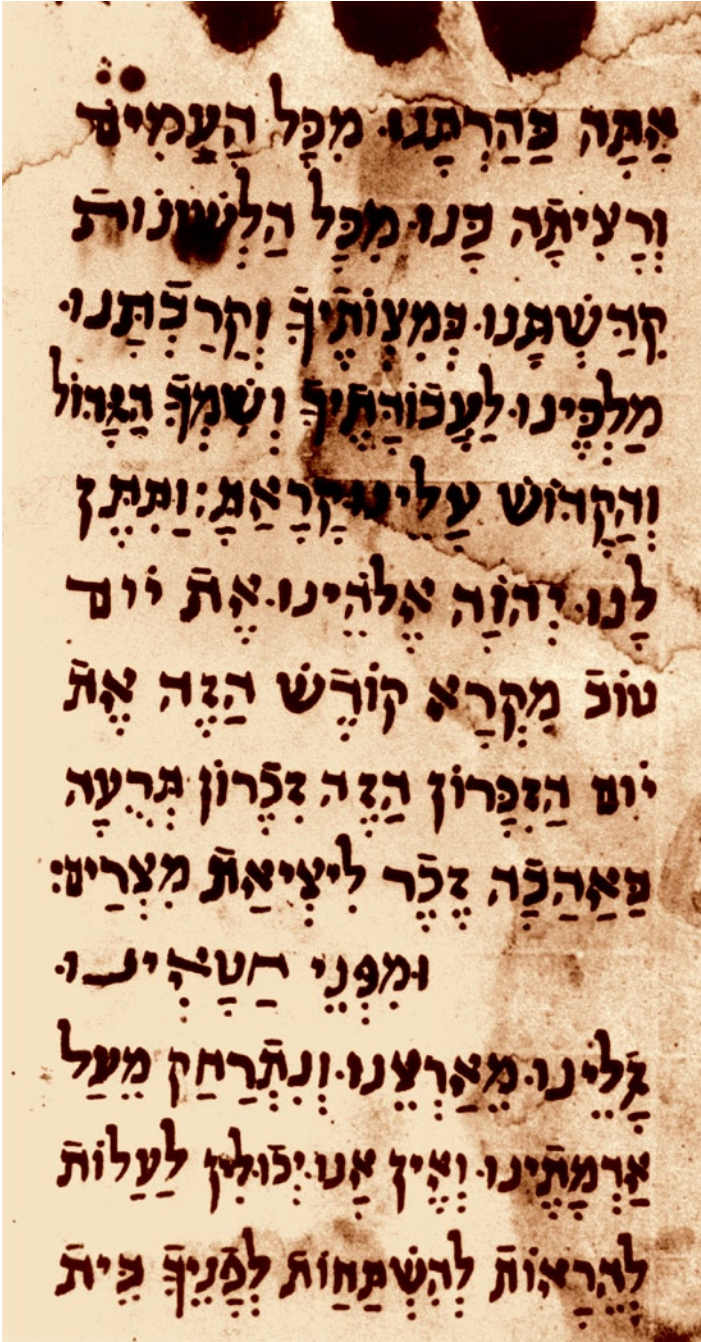 אַתָּה בַּהַרְתָּנוּ מִכָּל הַעַמִים
וְרָצִיתָה בָּנוּ מִכָּל הַלְשׁוֹנוֹת
קִדַּשְׁתָּנוּ בְּמִצְוֹתֶיךָ וְקֵרַבְתָּנוּ
מַלְכֵּינוּ לַעֲבוֹדָתֶיךָ וְשִׁמְךָ הַגָּדוֹל
וְהַקָּדוֹשׁ עָלֵינוּ קָרָאַתָּ׃ וַתִּתֶּן
לָנוּ יְהוָה אֱלֹהֵינוּ אֶת יוֹם
טוֹב מִקְרָא קוֹדֶשׁ הַזֶּה אֶת
יוֹם הַזִּכָּרוֹן הַזֶּה זִכְרוֹן תְּרֻעָה
בַּאַהַבָה זֶכֶר לִיצִיאַת מִצְרַיִם׃
וּמִפְּנֵי חַטָאֵינוּ
גָּלֵינוּ מֵאַרְצֵנוּ וְנִתְרַחַק מֵעַל
אַדְמָתֵינוּ וְאֵין אָנוּ יְכוֹלִין לַעַלוֹת
לְהֵרָאוֹת לְהִשְׁתַּחוֹת לְפָנֶיךָ בֵּית